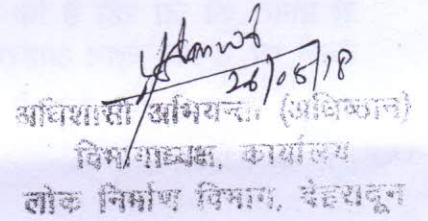 26/05/18
अधिशासी अभियन्ता (अधिष्ठान)
विभागाध्यक्ष, कार्यालय
लोक निर्माण विभाग, देहरादून